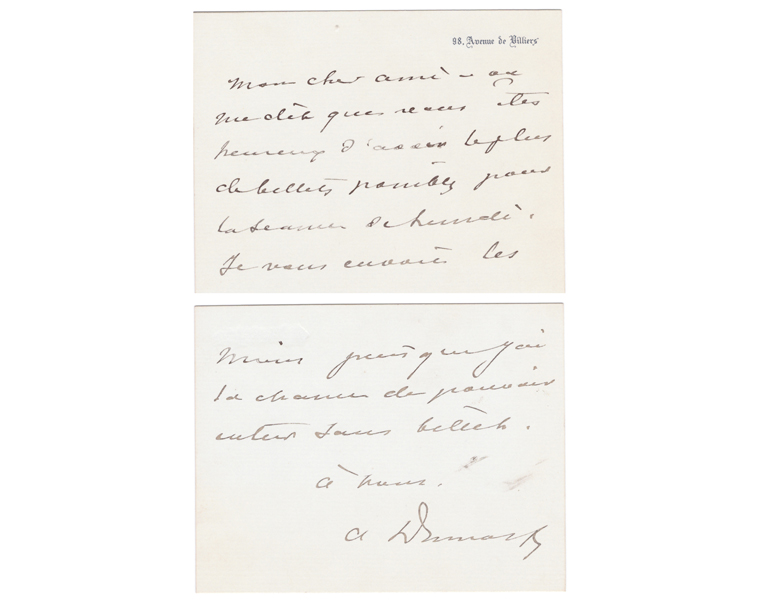 98, Avenue de Villiers
Mon cher ami – on
me dit que vous êtes
heureux d'avoir le plus
de billets possibles pour
la séance de lundi.
Je vous envoie les
miens puisque j'ai
la chance de pouvoir
entrer sans billets.
à vous.
A Dumas f